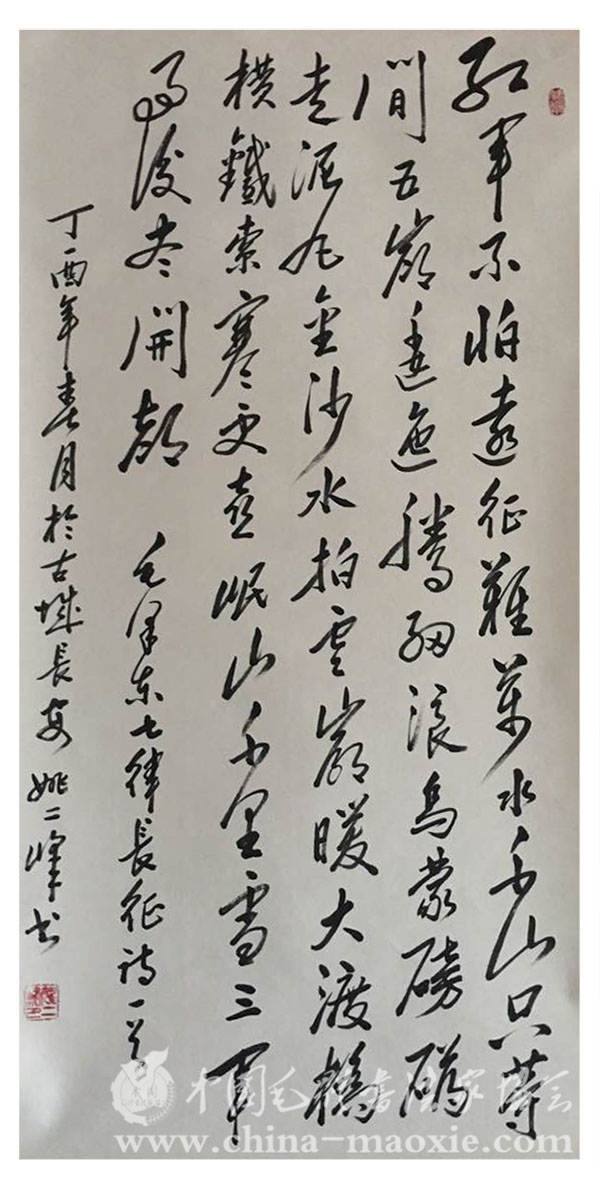 红军不怕遠征難萬水千山只等
閒五嶺逶迤腾细浪烏蒙磅礴
走泥丸金沙水拍雲崖暖大渡橋
横鐵索寒更喜岷山千里雪三軍
过後尽開颜 毛泽东七律長征诗一首
丁酉年春月於古城長安 姚二峰书
中國毛体書法家协会
www.china-maoxie.com